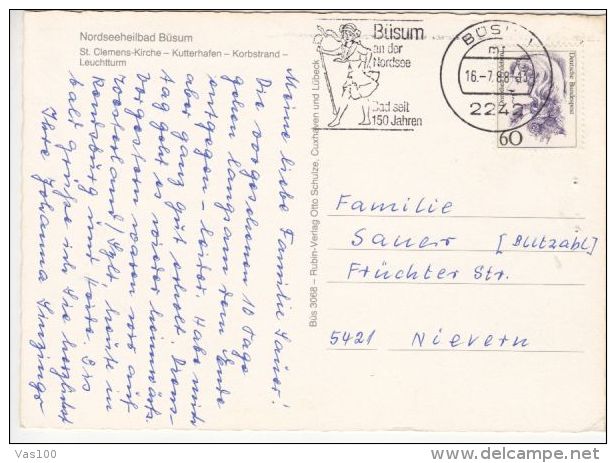 Nordseeheilbad Büsum
St. Clemens-Kirche – Kutterhafen – Korbstrand –
Leuchtturm
Büsum
an der
Nordsee
Bad seit
150 Jahren
BÜSUM
16.-7.88-
2242
Deutsche Bundespost
60
Meine liebe Familie Sauer!
Die vorgesehenen 10 Tage
gehen langsam dem Ende
entgegen – leider. Habe mich
aber ganz gut erholt. Diens-
tag geht es wieder heimwärts.
Vorgestern waren wir auf
/Sylt, heute in
Rendsburg und Heide. Bis
bald grüße ich Sie herzlichst
Ihre Johanna
Büs 3068 – Rubin-Verlag Otto Schulze, Cuxhaven und Lübeck
Familie
Sauer [Blitzabl]
Früchter Str.
5421 Nievern
Vas100
delcampe.net